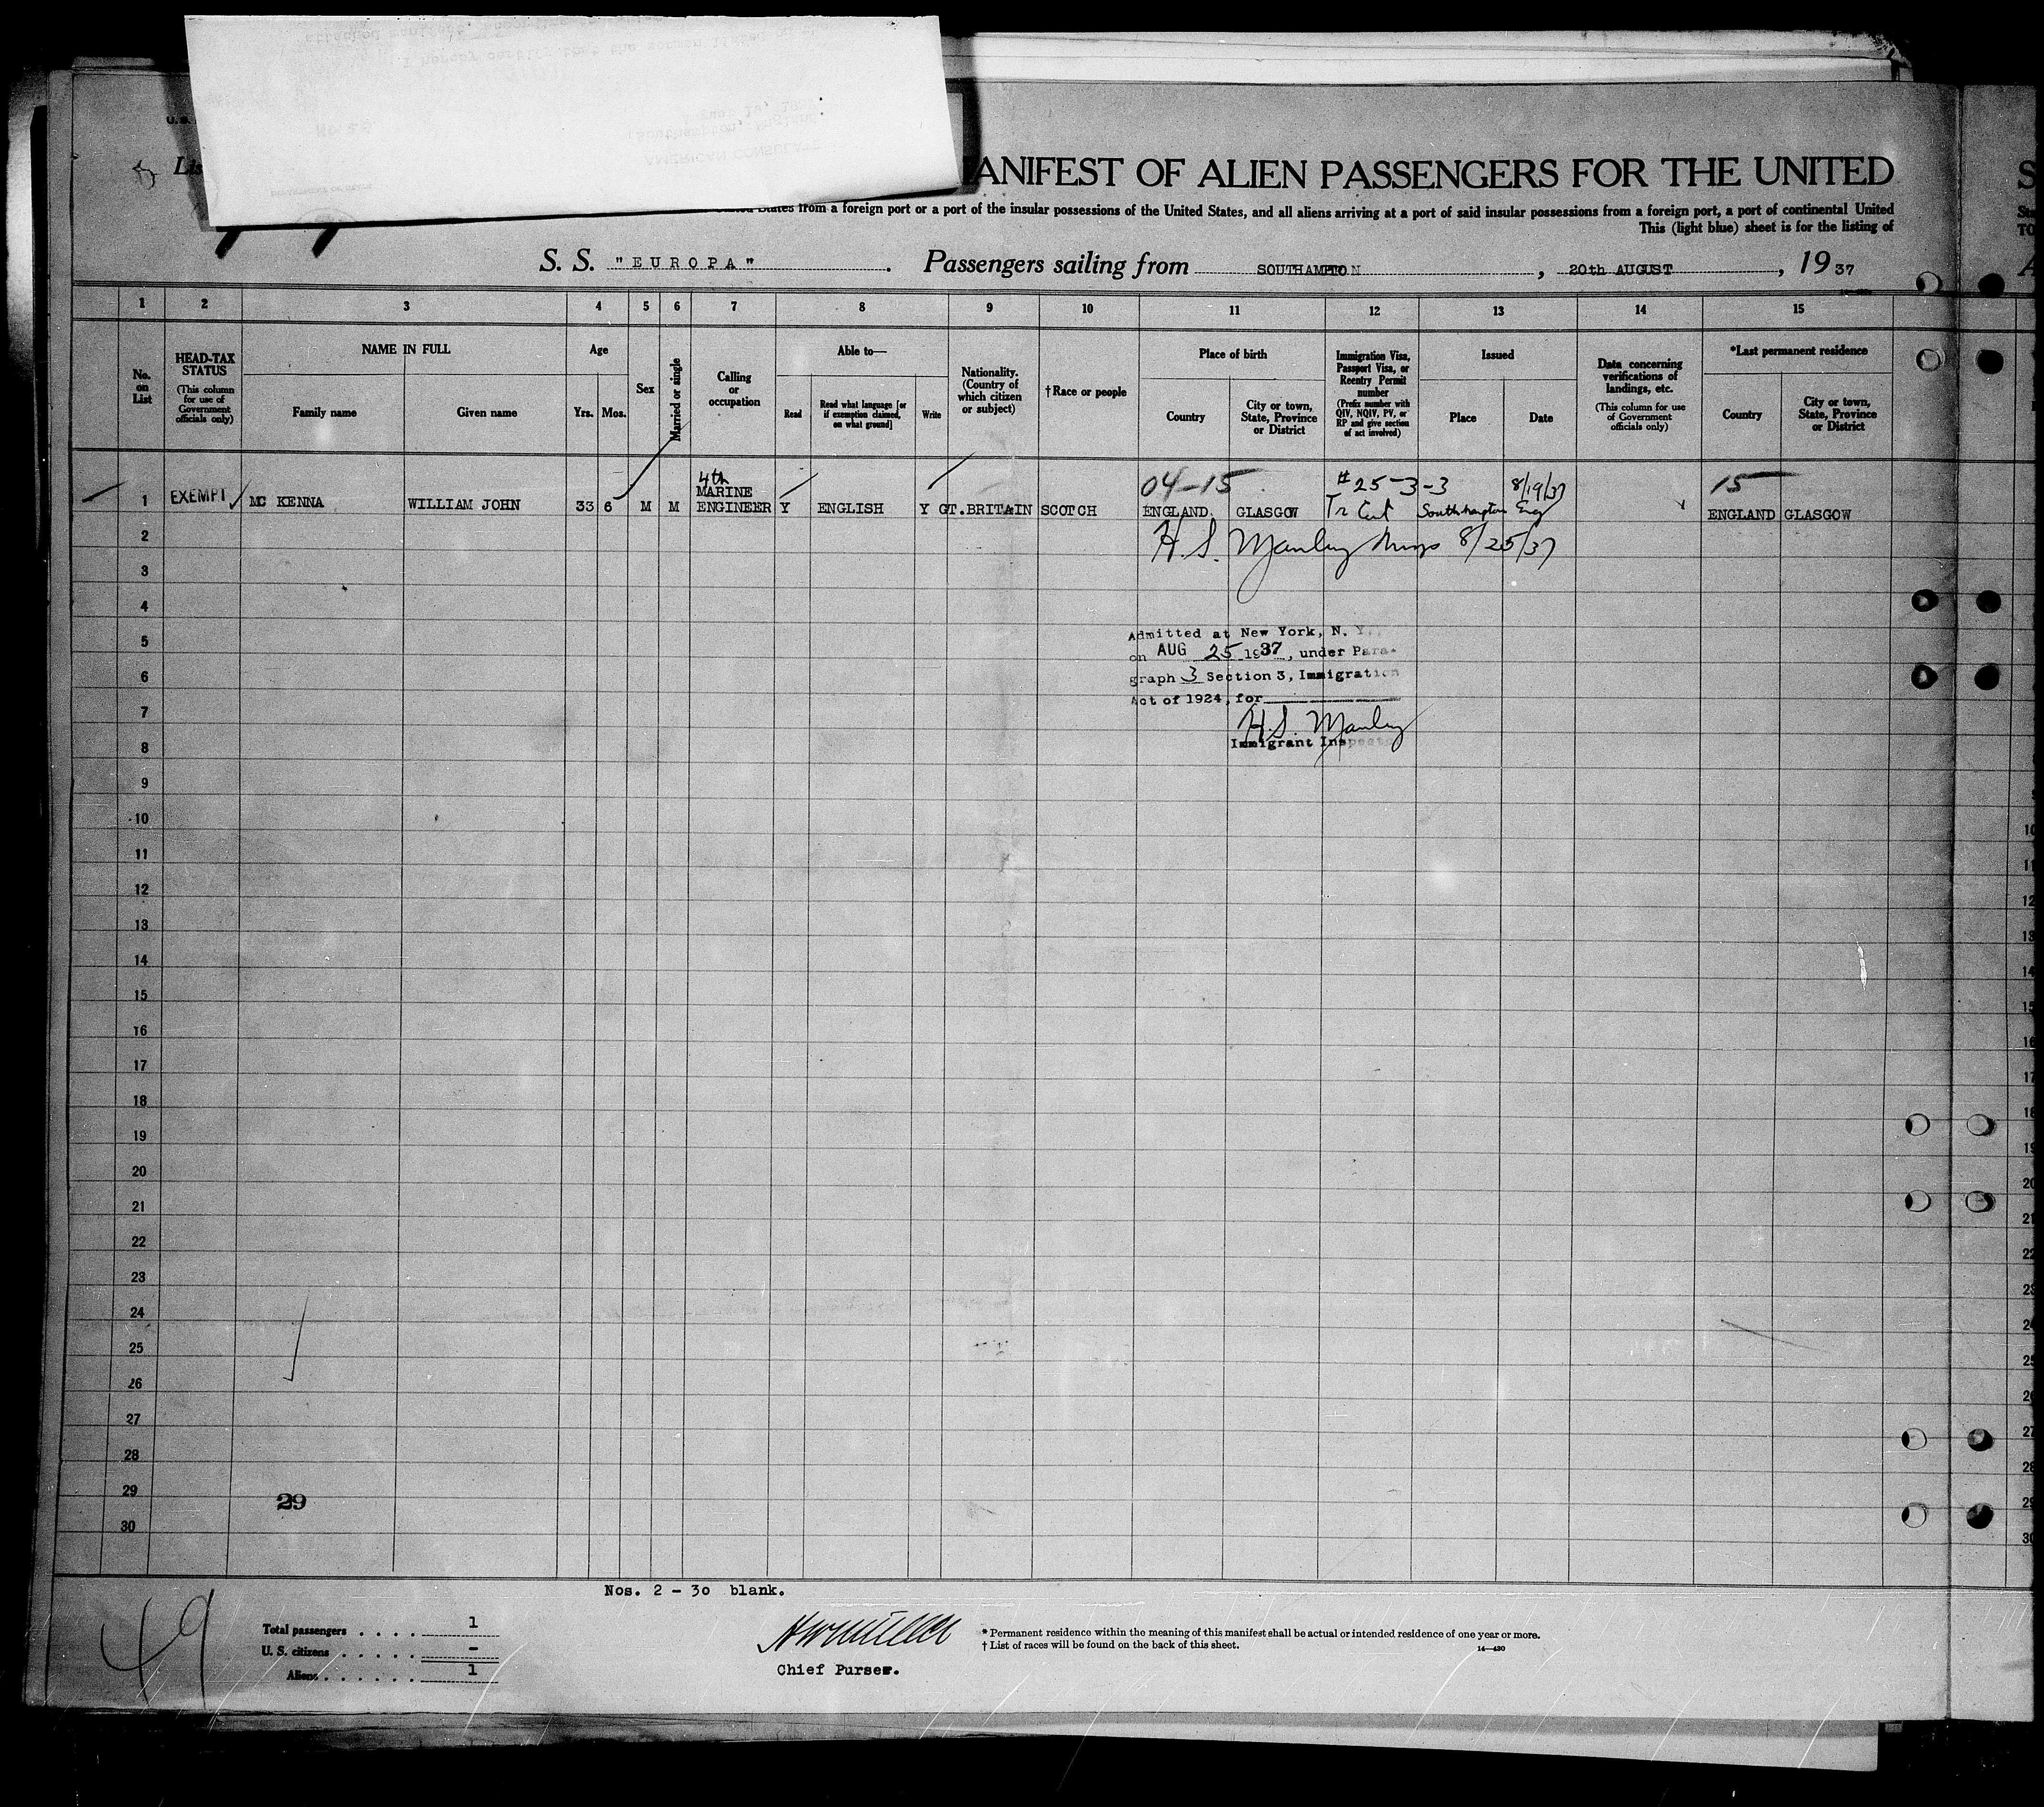 ANIFEST OF ALIEN PASSENGERS FOR THE UNITED
States from a foreign port or a port of the insular possessions of the United States, and all aliens arriving at a port of said insular possessions from a foreign port, a port of continental United
This (light blue) sheet is for the listing of
S. S. "EUROPA". Passengers sailing from SOUTHAMPTON, 20th AUGUST, 1937
1 2 3 4 5 6 7 8 9 10 11 12 13 14 15
No. on List
HEAD-TAX STATUS
(This column for use of Government officials only)
NAME IN FULL
Family name
Given name
Age
Yrs. Mos.
Sex
Married or single
Calling or occupation
Able to—
Read
Read what language [or if exemption claimed, on what ground]
Write
Nationality. (Country of which citizen or subject)
† Race or people
Place of birth
Country
City or town, State, Province or District
Immigration Visa, Passport Visa, or Reentry Permit number
(Prefix number with QIV, NQIV, PV, or RP and give section of act involved)
Issued
Place
Date
Data concerning verifications of landings, etc.
(This column for use of Government officials only)
*Last permanent residence
Country
City or town, State, Province or District
4th 04-15 #25-3-3 8/19/37 15
1 EXEMPT MC KENNA WILLIAM JOHN 33 6 M M MARINE ENGINEER Y ENGLISH Y GT.BRITAIN SCOTCH ENGLAND. GLASGOW Tr Cert Southhampton Eng ENGLAND GLASGOW
2 H. S. Manley 8/25/37
3
4
5 Admitted at New York, N. Y.,
on AUG 25 1937, under Para-
6 graph 3 Section 3, Immigration
7 Act of 1924, for
H. S. Manley
8 Immigrant Inspector
9
10
11
12
13
14
15
16
17
18
19
20
21
22
23
24
25
26
27
28
29
29
30
Nos. 2 - 30 blank.
49
Total passengers .... 1
U. S. citizens ..... -
Aliens ...... 1
Chief Purser.
* Permanent residence within the meaning of this manifest shall be actual or intended residence of one year or more.
† List of races will be found on the back of this sheet.
14—430